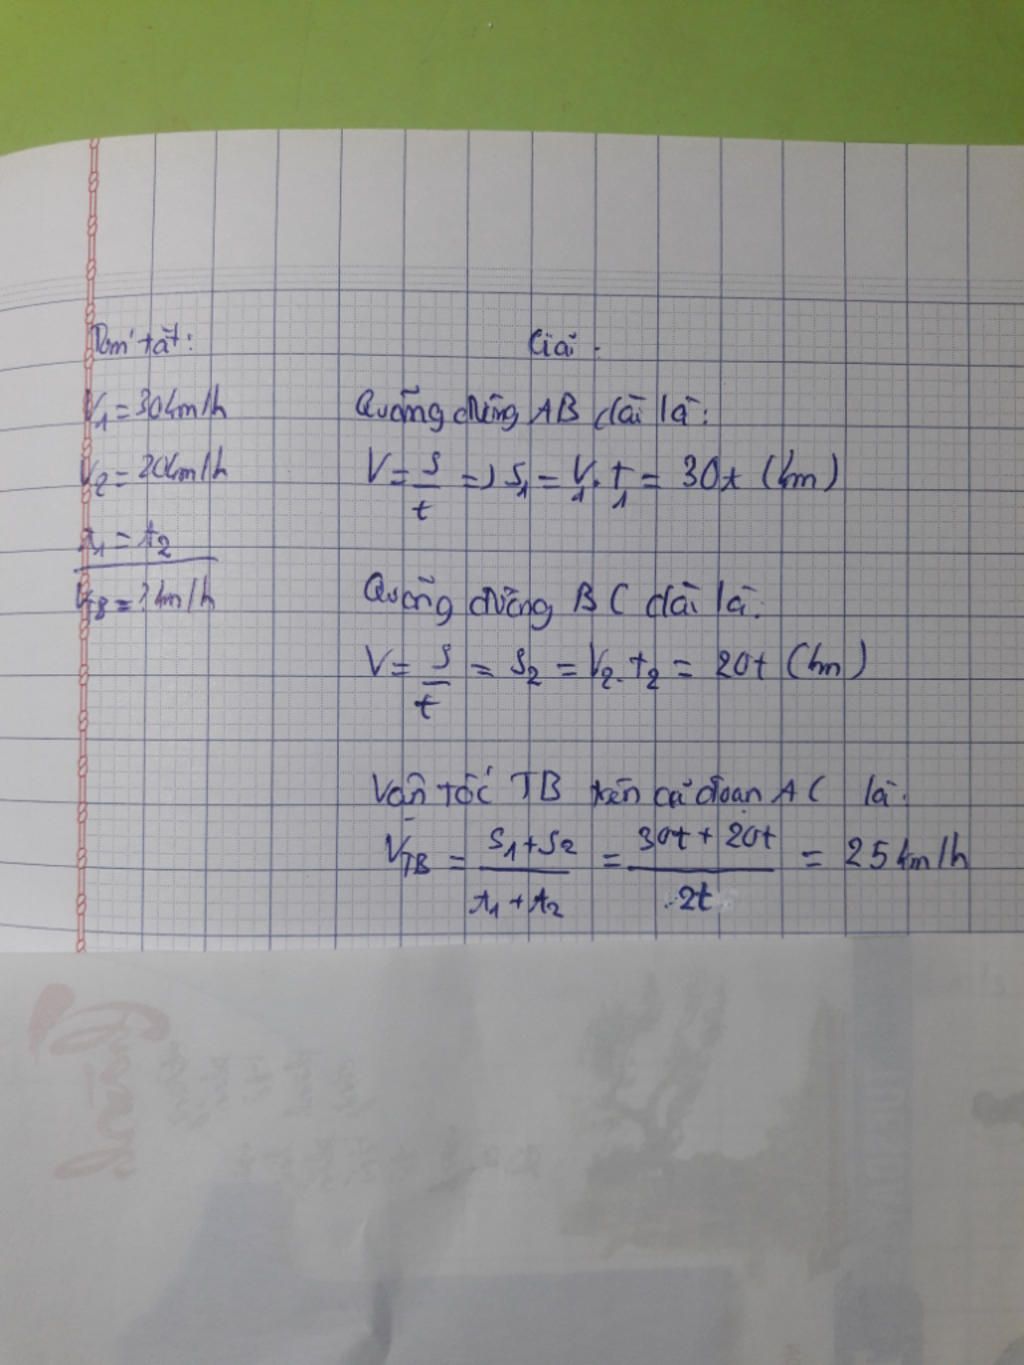 Tóm tắt:
V₁ = 30km/h
V₂ = 20km/h
t₁ = t₂
V_TB = ? km/h
Giải.
Quãng đường AB dài là:
V = s/t => S₁ = V₁.t₁ = 30t (km)
Quãng đường BC dài là:
V = s/t = S₂ = V₂.t₂ = 20t (km)
Vận tốc TB trên cả đoạn AC là:
V_TB = (S₁+S₂)/(t₁+t₂) = (30t + 20t)/2t = 25km/h